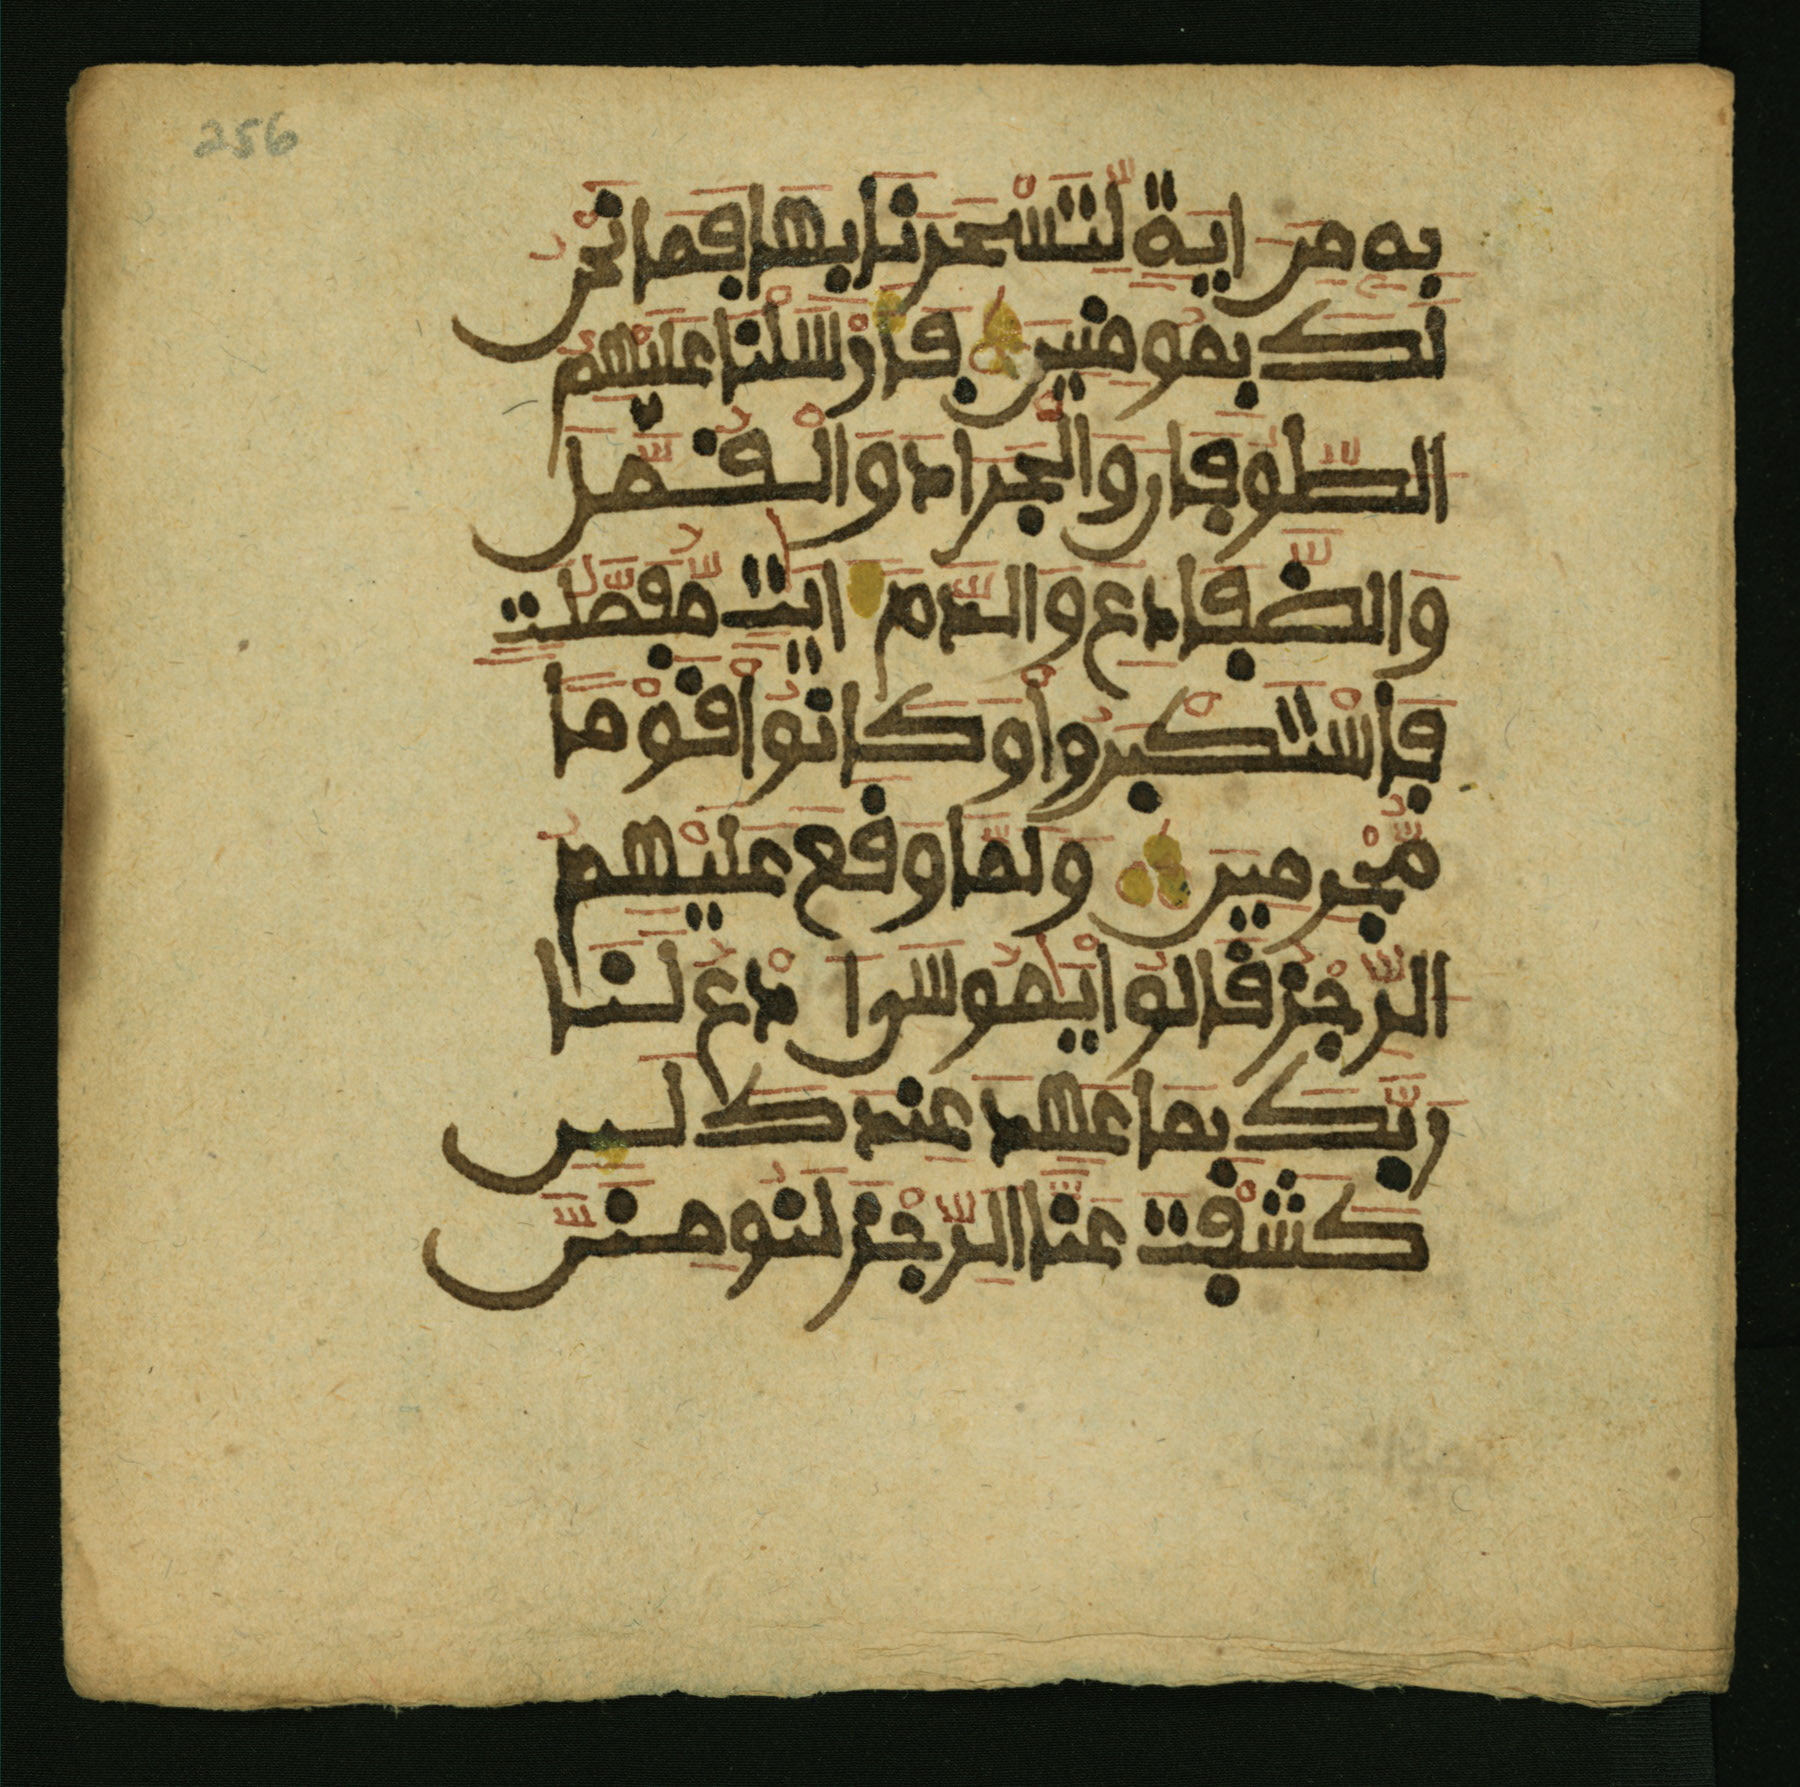 256
بِهِ مِنَ ايَةٍ لِّتَسْحَرَنَا بِهَا فَمَا نَحْنُ
لَكَ بِمُومِنِينَ فَأَرْسَلْنَا عَلَيْهِمُ
الطُّوفَانَ وَالْجَرَادَ وَالْقُمَّلَ
وَالضَّفَادِعَ وَالدَّمَ ايَتٍ مُّفَصَّلَتٍ
فَاسْتَكْبَرُواْ وَكَانُواْ قَوْمًا
مُّجْرِمِينَ وَلَمَّا وَقَعَ عَلَيْهِمُ
الرِّجْزُ قَالُواْ يَمُوسَى ادْعُ لَنَا
رَبَّكَ بِمَا عَهِدَ عِندَكَ لَئِن
كَشَفْتَ عَنَّا الرِّجْزَ لَنُومِنَنَّ